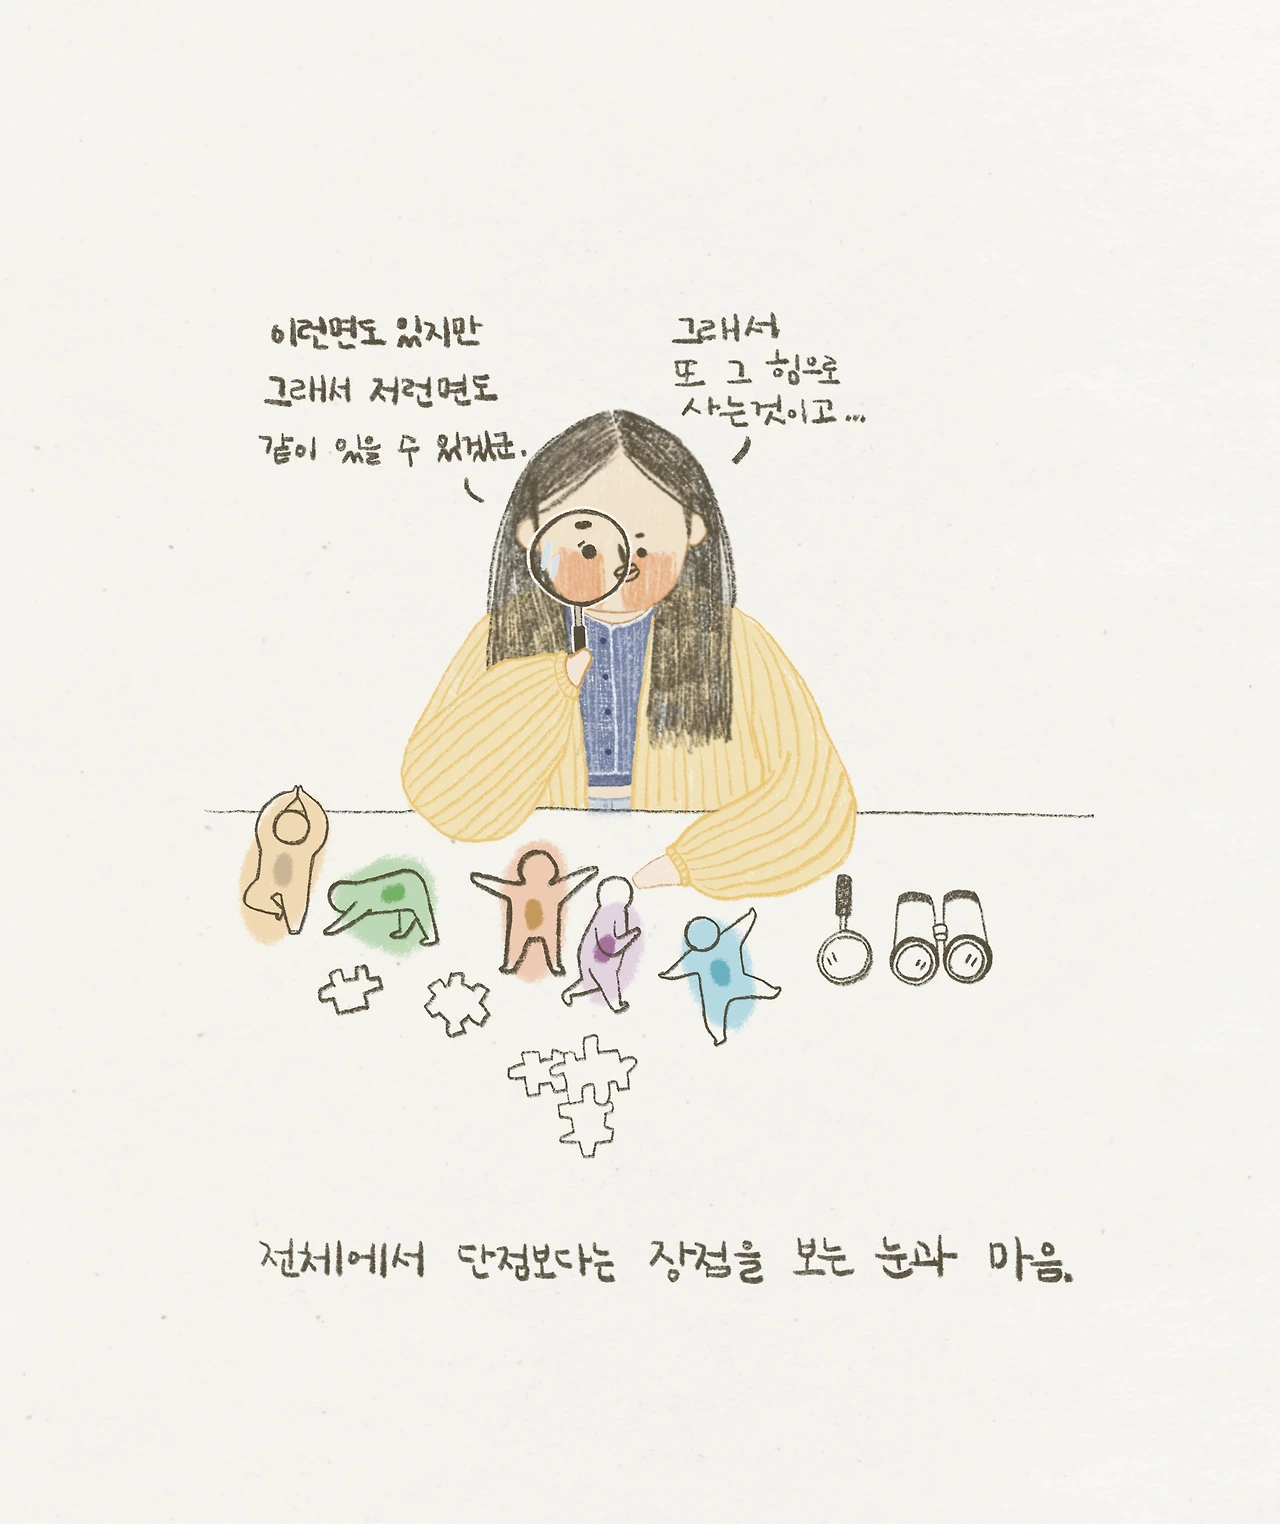 이런면도 있지만
그래서 저런면도
같이 있을 수 있겠군.
그래서
또 그 힘으로
사는것이고...
전체에서 단점보다는 장점을 보는 눈과 마음.